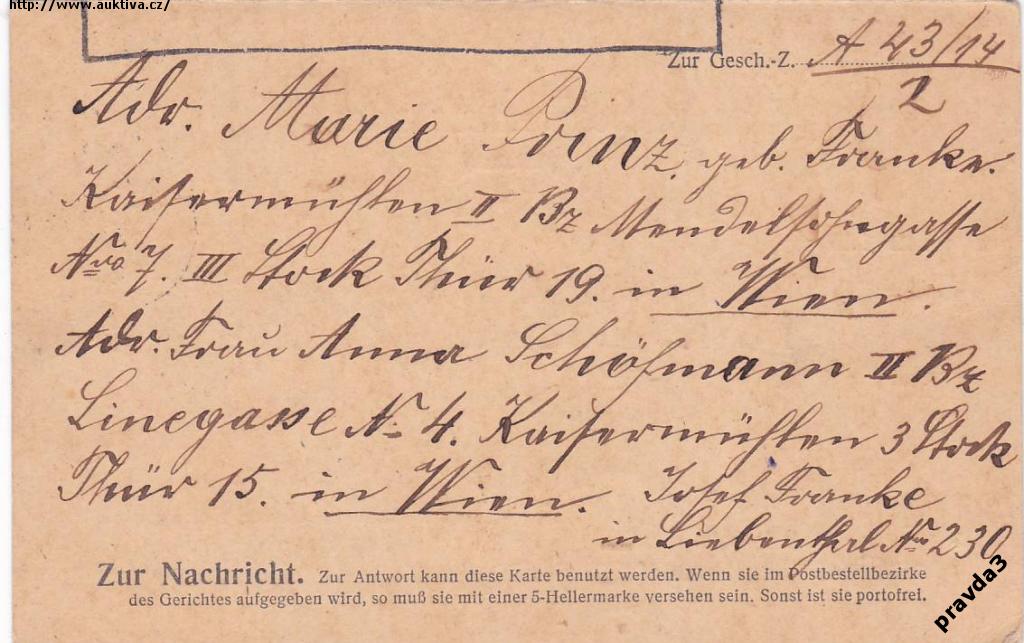 http://www.auktiva.cz/
Zur Gesch.-Z. A 23/14
2
Adr. Marie Prinz. geb. Franke.
Kaisermühlen II Bz Mendelsohngasse
Nro 7. III Stock Thür 19. in Wien.
Adr. Frau Anna Schöfmann II Bz
Linegasse No 4. Kaisermühlen 3 Stock
Thür 15. in Wien. Josef Franke
in Liebenthal Nro 230
Zur Nachricht. Zur Antwort kann diese Karte benutzt werden. Wenn sie im Postbestellbezirke
des Gerichtes aufgegeben wird, so muß sie mit einer 5-Hellermarke versehen sein. Sonst ist sie portofrei.
pravda3